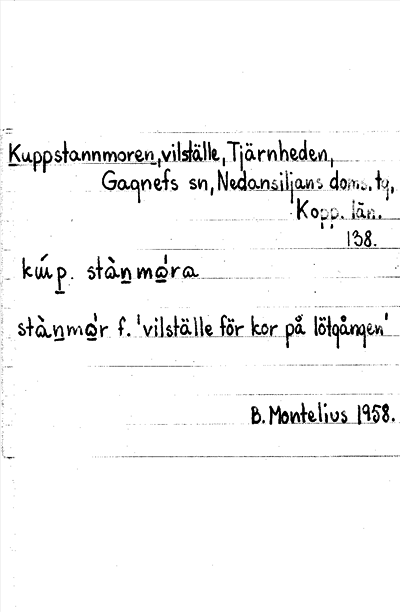 Kuppstannmoren, vilställe, Tjärnheden,
Gagnefs sn, Nedansiljans doms. tg,
Kopp. län.
138.
kúp. stànmǫ́ra
stànmǫ́r f. 'vilställe för kor på lötgången'
B. Montelius 1958.